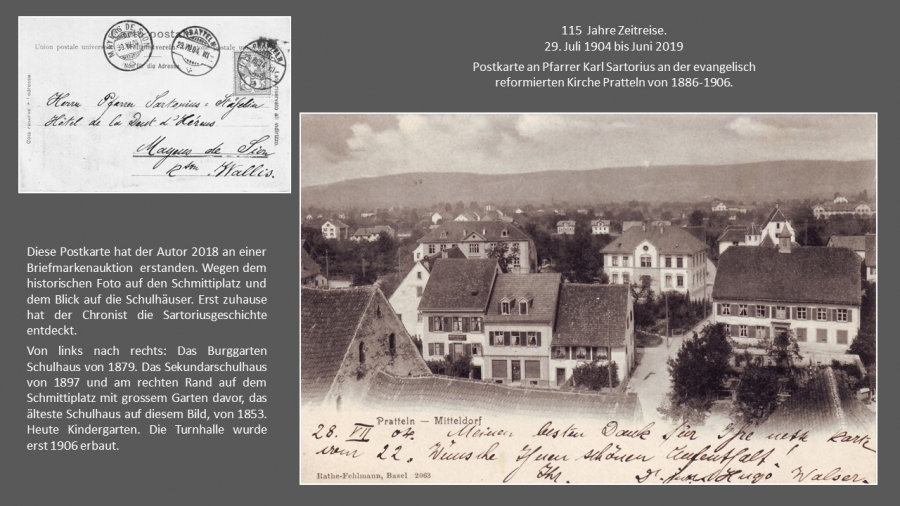 Carte postale
Union postale universelle
Nur für die Adresse
PRATTELN
29.VII.04
Herrn Pfarrer Sartorius-Häfelin
Hôtel de la Dent d'Hérens
Mayens de Sion
Ktn. Wallis.
115 Jahre Zeitreise.
29. Juli 1904 bis Juni 2019
Postkarte an Pfarrer Karl Sartorius an der evangelisch
reformierten Kirche Pratteln von 1886-1906.
Diese Postkarte hat der Autor 2018 an einer
Briefmarkenauktion erstanden. Wegen dem
historischen Foto auf den Schmittiplatz und
dem Blick auf die Schulhäuser. Erst zuhause
hat der Chronist die Sartoriusgeschichte
entdeckt.
Von links nach rechts: Das Burggarten
Schulhaus von 1879. Das Sekundarschulhaus
von 1897 und am rechten Rand auf dem
Schmittiplatz mit grossem Garten davor, das
älteste Schulhaus auf diesem Bild, von 1853.
Heute Kindergarten. Die Turnhalle wurde
erst 1906 erbaut.
Pratteln — Mitteldorf
28. VII 04. Meinen besten Dank für Ihre nette Karte
vom 22. Wünsche Ihnen schönen Aufenthalt
Ihr. Dr. Hugo Walser.
Rathe-Fehlmann, Basel 2063